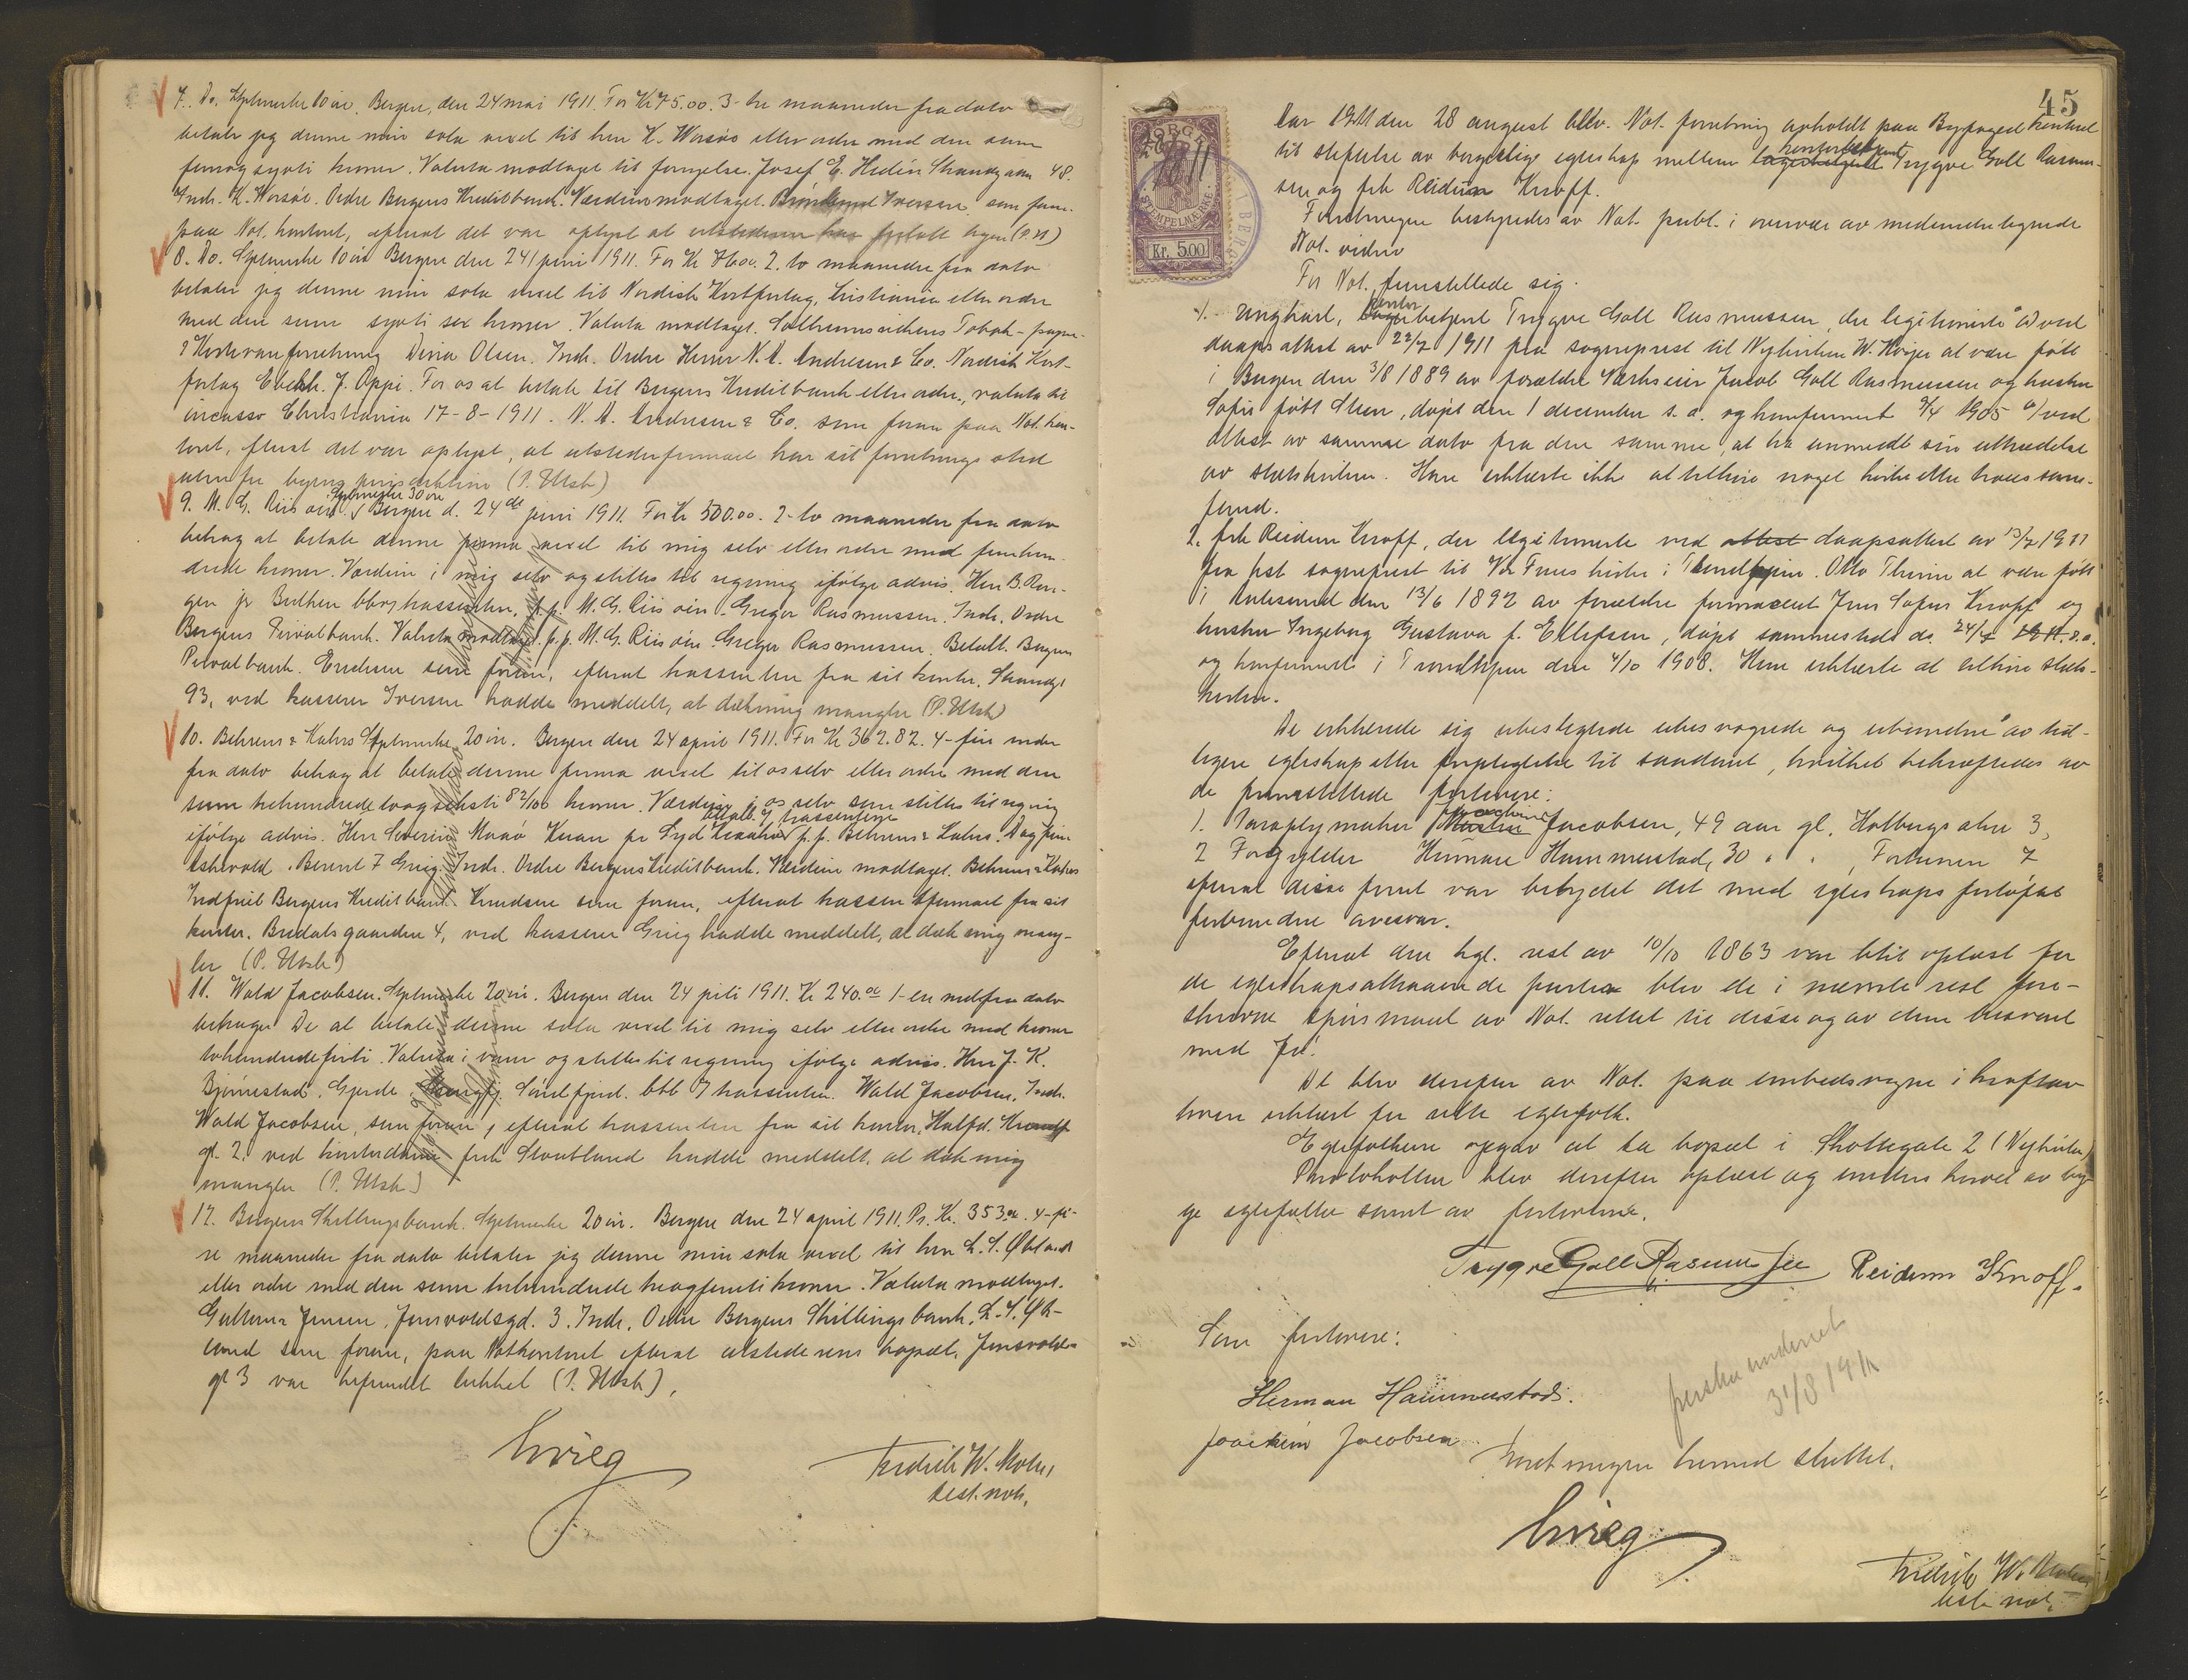 7. Do. Stplmerke 10 øre. Bergen, den 24 mai 1911. For Kr 75.00. 3-tre maaneder fra dato
betaler jeg denne min sola vexel til herr K. Worsøe eller ordre med den sum
femogsyvti kroner. Valuta modtaget til fornyelse. Josef E. Hedin Strandgaten 48.
Indr. K. Worsøe. Ordre Bergens Kreditbank. Værdien modtaget. Iversen som foran
paa Not. kontoret, efterat det var oplyst at utstederen har forlatt byen (P. U)
8. Do. Stplmerke 10 øre Bergen den 24 juni 1911. For Kr 76.00. 2. to maaneder fra dato
betaler jeg denne min sola vexel til Nordisk Kortforlag, Kristiania eller ordre
med den sum syvti sex kroner. Valuta modtaget. Solheimsvikens Tobak- papir-
& Kortevareforretning Dina Olsen. Indr. Ordre Herrer N. A. Andresen & Co. Nordisk Kort-
forlag J. Oppi. For os at betale til Bergens Kreditbank eller ordre, valuta til
incasso Christiania 17-8-1911. N. A. Andresen & Co. som foran paa Not. kon-
toret, efterat det var oplyst, at utstederfirmaet har sit forretningssted
utenfor byens jurisdiktion (P. Utsk)
9. M. G. Riis oin. Stplmerke 30 øre Bergen d. 24de juni 1911. For Kr 500.00. 2-to maaneder fra dato
behag at betale denne prima vexel til mig selv eller ordre med femhun-
drede kroner. Værdien i mig selv og stilles til regning ifølge advis. Herr B. Ron-
gen jr Bulken bboz trassenten. p.p. M. G. Riis oin. Greger Rasmussen. Indr. Ordre
Bergens Privatbank. Valuta modtaget. p.p. M. G. Riis oin. Greger Rasmussen. Betalt. Bergens
Privatbank. Erichsen som foran, efterat trassenten fra sit kontor, Strandgt
93, ved kasserer Iversen hadde meddelt, at dækning mangler (P. Utsk)
10. Behrens & Kahrs Stplmerke 20 øre. Bergen den 24 april 1911. For Kr 362.82. 4-fire mdr
fra dato behag at betale denne prima vexel til os selv eller ordre med den
sum trehundredetoogseksti 82/100 kroner. Værdien i os selv som stilles til regning
ifølge advis. Herr Severin Knarr pr betalb. hos trassenterne p.p. Behrens & Kahrs. Dagfinn
Eskevold. Berent F Grieg. Indr. Ordre Bergens Kreditbank. Værdien modtaget. Behrens & Kahrs
Indfriet Bergens Kreditbank Knudsen som foran, efterat trassentfirmaet fra sit
kontor, Bredalsgaarden 4, ved kasserer Grieg hadde meddelt, at dækning mang-
ler (P. Utsk)
11. Wald Jacobsen. Stplmerke 20 øre. Bergen den 24 juli 1911. Kr 240.00 1-en mdr fra dato
behager De at betale denne sola vexel til mig selv eller ordre med kroner
tohundredefirti. Valuta i varer og stilles til regning ifølge advis. Herr J. K.
Bjørnestad. Gjerde, Søndfjord. btb hos trassenten. Wald Jacobsen. Indr.
Wald Jacobsen, som foran, efterat trassenten fra sit kontor, Halfd. Kran
gt. 2. ved kontordame frk Stoutland hadde meddelt, at dækning
mangler (P. Utsk)
12. Bergens Skillingsbank. Stplmerke 20 øre. Bergen den 24 april 1911. Pr. Kr. 353.00. 4-fi-
re maaneder fra dato betaler jeg denne min sola vexel til herr L. S. Økland
eller ordre med den sum trehundrede treogfemti kroner. Valuta modtaget.
Guttorm Jensen. Jonsvoldsgd. 3. Indr. Ordre Bergens Skillingsbank. L. S. Øk-
land som foran, paa Notkontoret efterat utstederens bopæl, Jonsvolds-
gt 3 var befundet lukket (P. Utsk).
Grieg
Fredrik W. Mohr,
best. not.
45
NORGE
1911
STEMPELMÆRKE
Kr. 5.00
Aar 1911 den 28 august blev Not. forretning avholdt paa Byfogedkontoret
til stiftelse av borgerlig egteskap mellem lagerbetjent kontorbetjent Trygve Gall Rasmus-
sen og frk Reidun Knoff.
Forretningen bestyredes av Not. publ. i overvær av medundertegnede
Not. vidne
For Not. fremstillede sig:
1. ungkarl, kontorbetjent Trygve Gall Rasmussen, der legitimerte a) ved
daapsattest av 22/7 1911 fra sogneprest til Nykirken W. Koijer at være født
i Bergen den 3/8 1889 av forældre Verkseier Jacob Gall Rasmussen og hustru
Sofie født Steen, døpt den 1 december s. a. og konfirmert 2/4 1905 b) ved
attest av samme dato fra den samme, at ha anmeldt sin uttrædelse
av statskirken. Han erklærte ikke at tilhøre noget kirke eller trossam-
fund.
2. frk Reidun Knoff, der legitimerte ved attest daapsattest av 13/7 1911
fra fst sogneprest til Vor Frues kirke i Trondhjem. Otto Thiim at være født
i Aalesund den 13/6 1892 av forældre farmaceut Jens Sofus Knoff og
hustru Ingeborg Gustava f. Ellefsen, døpt sammesteds ds 24/7 s.a.
og konfirmert i Trondhjem den 4/10 1908. Hun erklærte at tilhøre stats-
kirken.
De erklærede sig ubeslegtede ubesvogrede og ubundne av tid-
ligere egteskap eller forpligtelse til saadant, hvilket bekræftedes av
de fremstillede forlovere:
1. Paraplymaker Joachim Jacobsen, 49 aar gl. Holbergs alm 3,
2 Forgylder Herman Hammerstad, 30 " " , Fortunen 7
efterat disse først var betydet det med egteskaps forløfte
forbundne ansvar.
Efterat den kgl. res. av 10/10 1863 var blit oplæst for
de egteskapsattraaende parter blev de i nævnte res. fore-
skrevne spørsmaal av Not. rettet til disse og av dem besvaret
med Ja!
De blev derefter av Not. paa embedsvegne i kraft av
loven erklæret for rette egtefolk.
Egtefolkene opgav at ta bopæl i Skottegate 2 (Nykirken)
Protokollen blev derefter oplæst og underskrevet av beg-
ge egtefolke samt av forloverne.
Trygve Gall Rasmussen Reidunn Knoff.
Som forlovere:
Herman Hammerstad.
Joachim Jacobsen
presten underret
31/8 1911
Forretningen hermed sluttet.
Grieg
Fredrik W. Mohr
best. not.